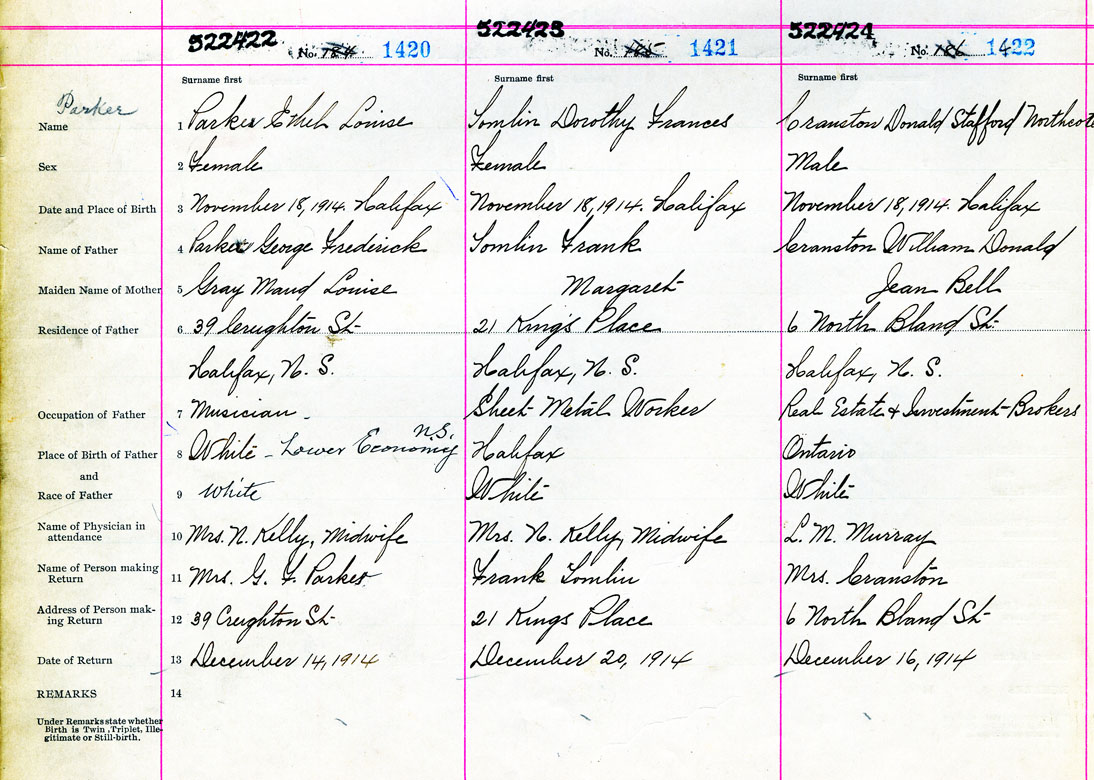 522422 522423 522424
No. 784 1420 No. 785 1421 No. 786 1422
Surname first Surname first Surname first
Parker
Name 1 Parker Ethel Louise Tomlin Dorothy Frances Cranston Donald Stafford Northcote
Sex 2 Female Female Male
Date and Place of Birth 3 November 18, 1914. Halifax November 18, 1914. Halifax November 18, 1914. Halifax
Name of Father 4 Parker George Frederick Tomlin Frank Cranston William Donald
Maiden Name of Mother 5 Gray Maud Louise Margaret Jean Bell
Residence of Father 6 39 Creighton St. 21 King's Place 6 North Bland St.
Halifax, N. S. Halifax, N. S. Halifax, N. S.
Occupation of Father 7 Musician Sheet Metal Worker Real Estate & Investment Brokers
Place of Birth of Father 8 White - Lower Economy N.S. Halifax Ontario
and
Race of Father 9 White White White
Name of Physician in
attendance 10 Mrs. N. Kelly, Midwife Mrs. N. Kelly, Midwife L. M. Murray
Name of Person making
Return 11 Mrs. G. F. Parker Frank Tomlin Mrs. Cranston
Address of Person mak-
ing Return 12 39 Creighton St. 21 Kings Place 6 North Bland St.
Date of Return 13 December 14, 1914 December 20, 1914 December 16, 1914
REMARKS 14
Under Remarks state whether
Birth is Twin, Triplet, Ille-
gitimate or Still-birth.